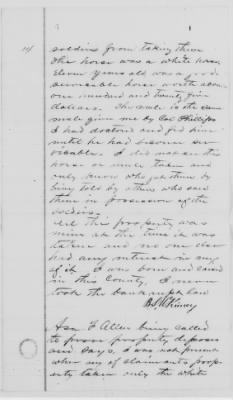 14
soldiers from taking them
The horse was a white horse
Eleven years old was a good
serviceable horse worth about
one hundred and twenty five
dollars. The mule is the same
mule give me by Col Phillips
I had doctored and fed him
until he had become ser-
viceable. I did not see the
horse or mule taken and
only know who got them by
being told by others who said
them in possession of the
soldiers.
All this property was
mine at the time it was
taken and no one else
had any interest in any
of it. I was born and raised
in this County. I never
took the bankrupt law
McKinney
F Allen being called
to prove property deposes
and says, I was not present
when any of claimants prop-
erty taken only the white